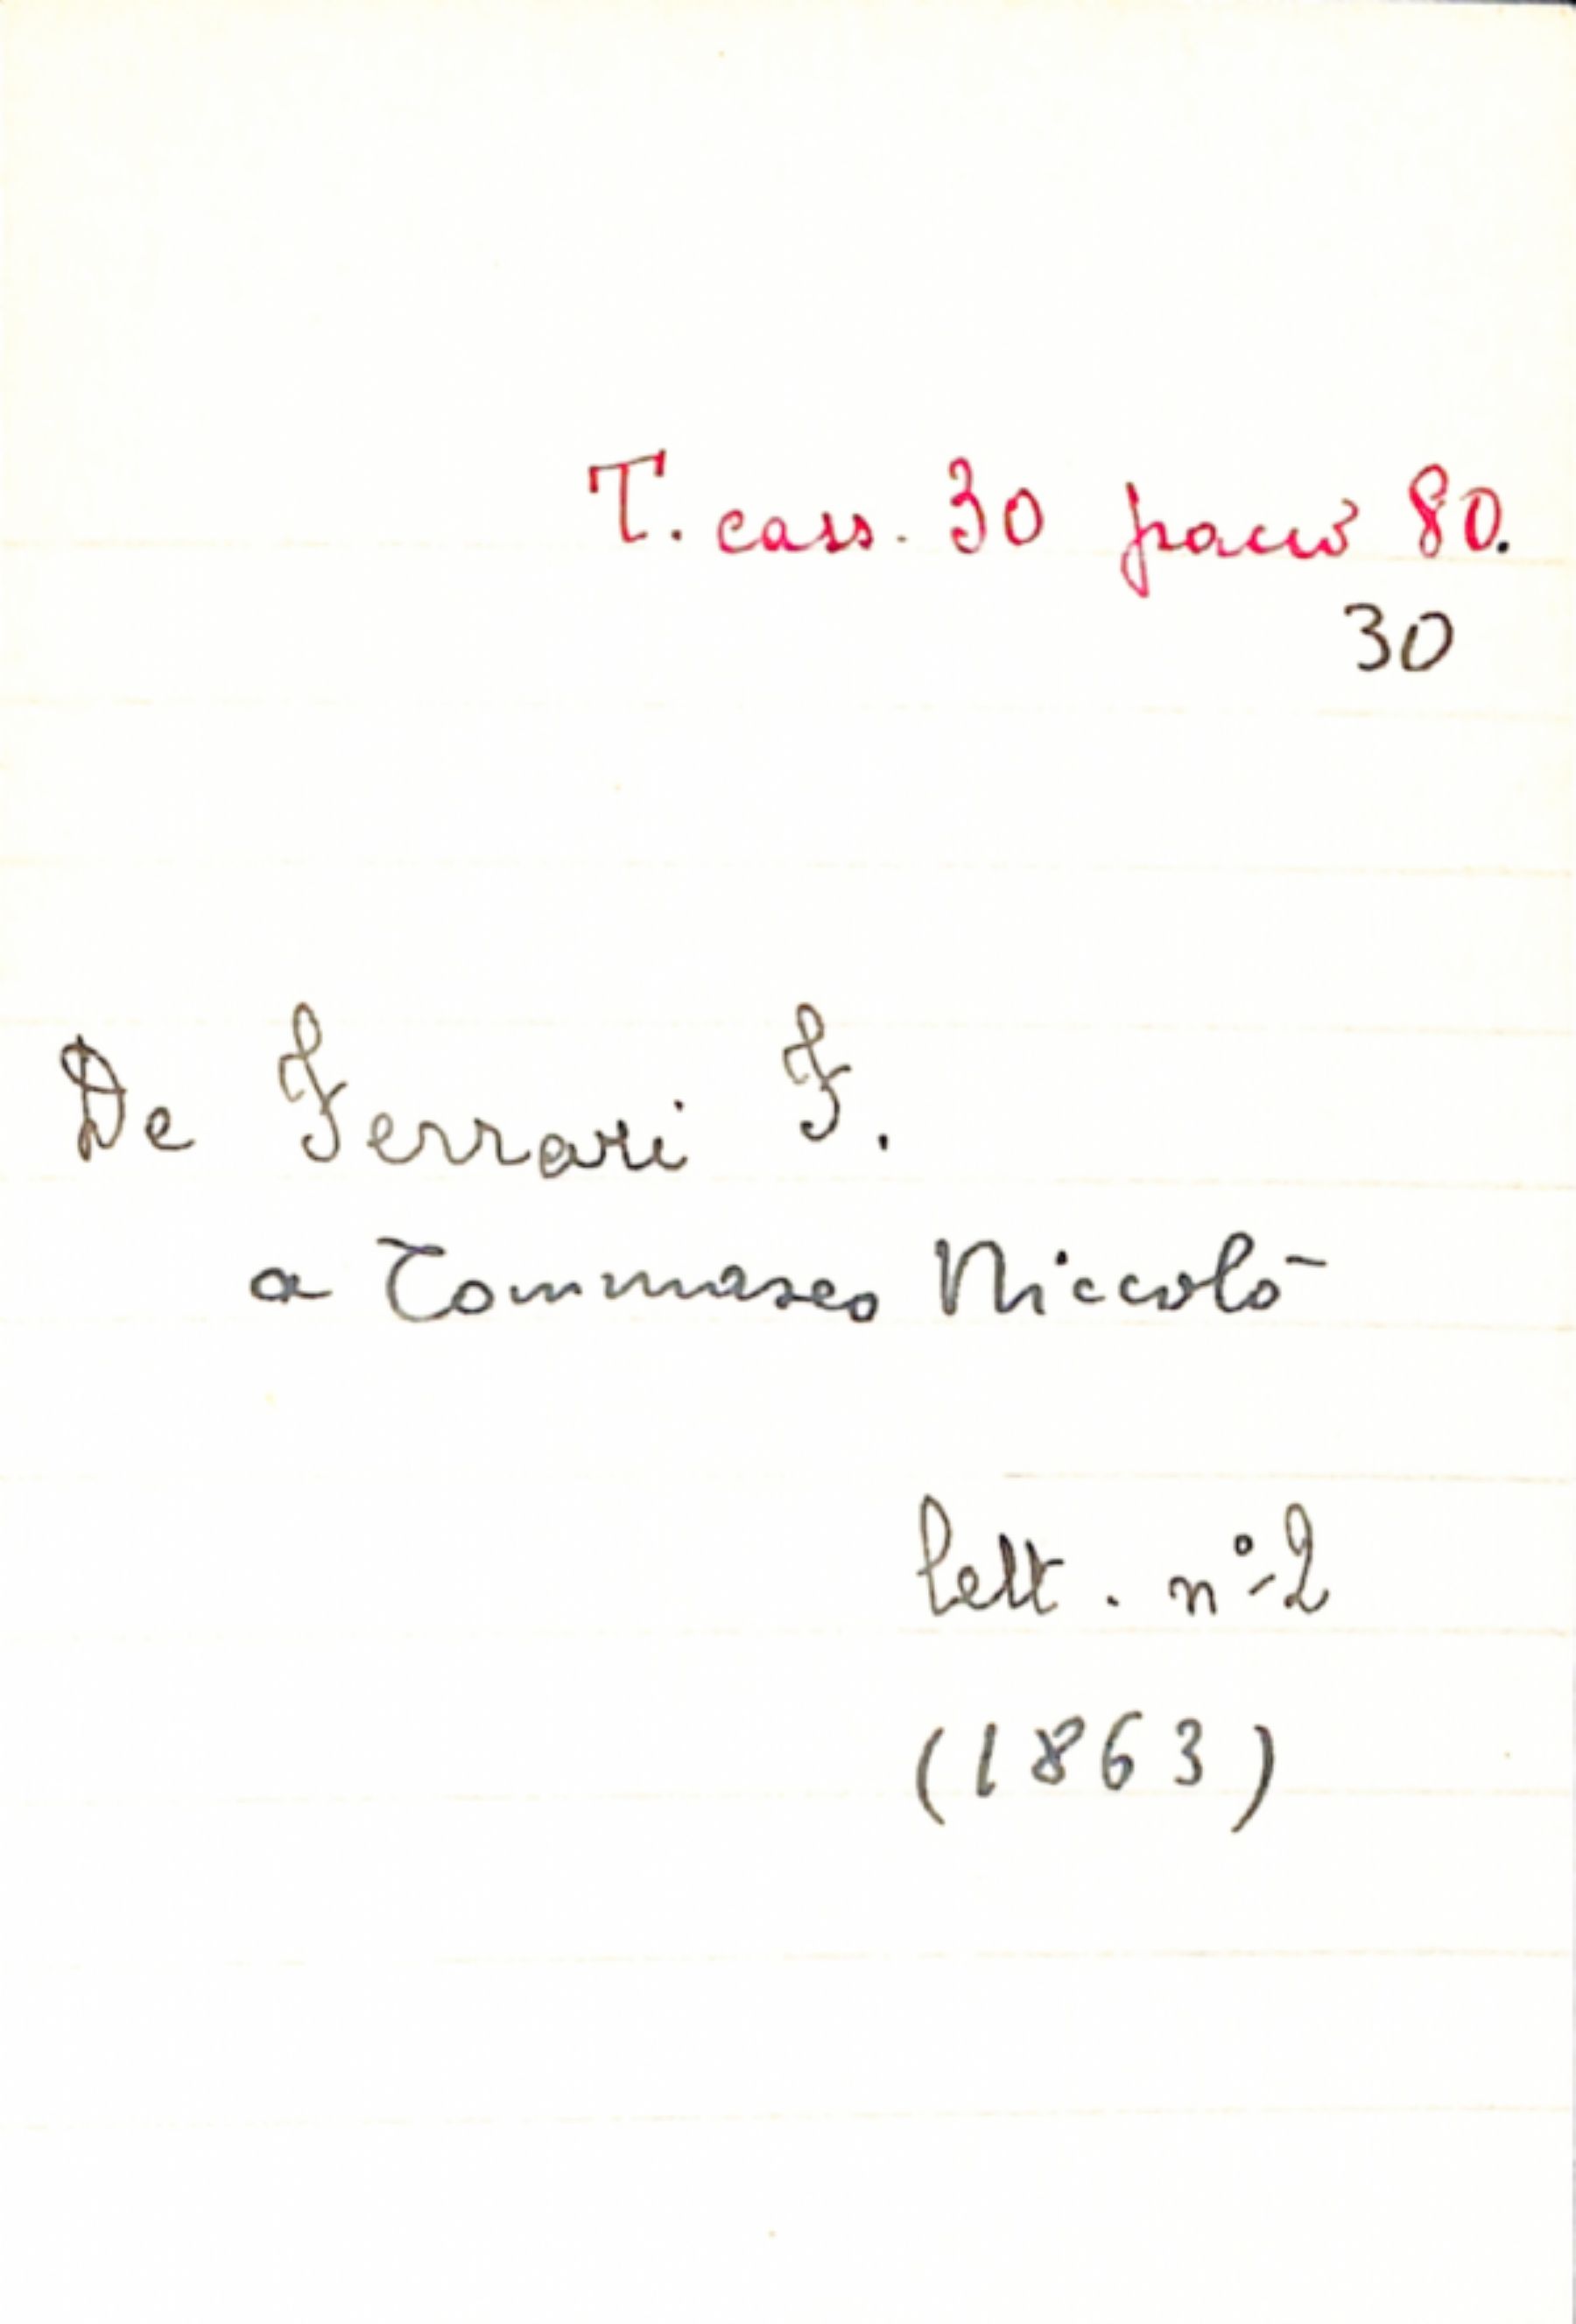 T. cass. 30 pacco 80.
30
De Ferrari F.
a Tommaseo Niccolò
lett. n° 2
(1863)